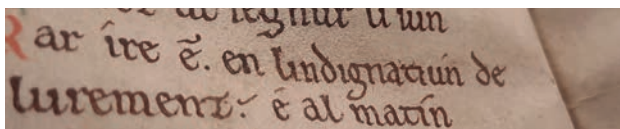 Kar ire ẽ. en lindignatiun de
lurement: é al matin